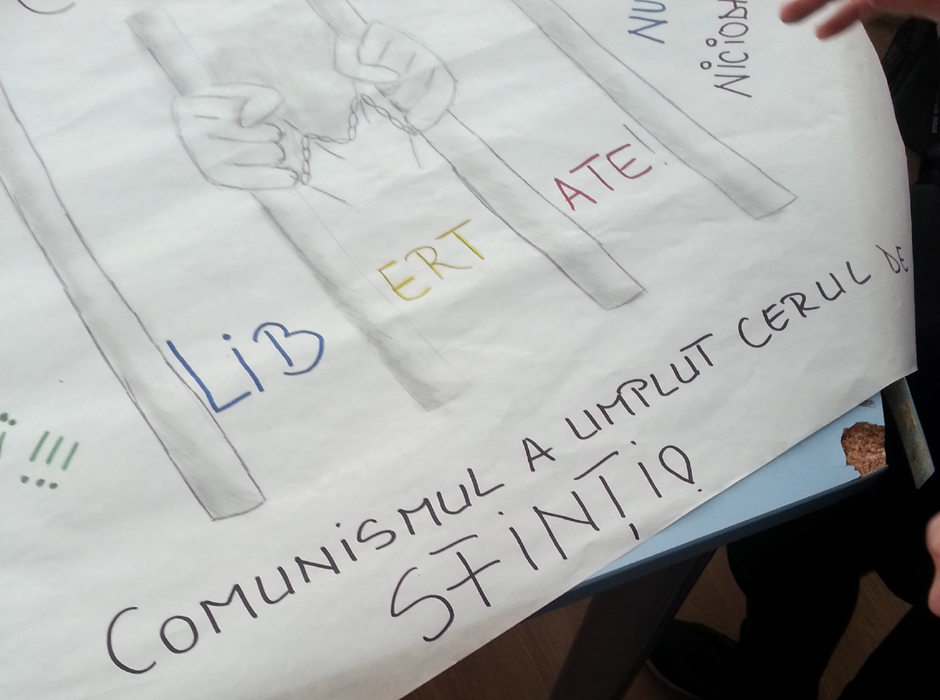 NU
LiB ERT ATE!
!!!
COMUNiSMUL A UMPLUT CERUL DE
SFINȚi!